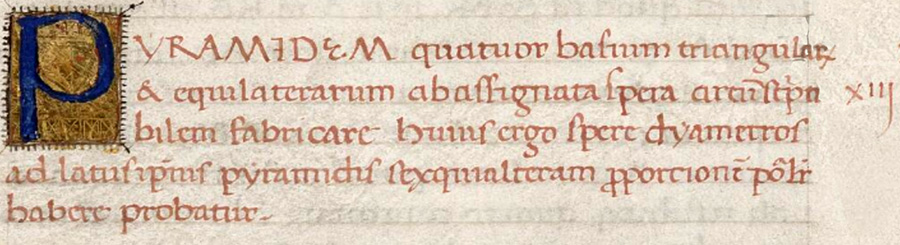 PYRAMIDEM quatuor basium triangulaꝝ
& equilaterarum ab assignata spera circūscⁱpti xiij
bilem fabricare huius ergo spere dyametros
ad latus ip̄ius pyramidis sexquialteram ꝓporcionē
habere probatur.